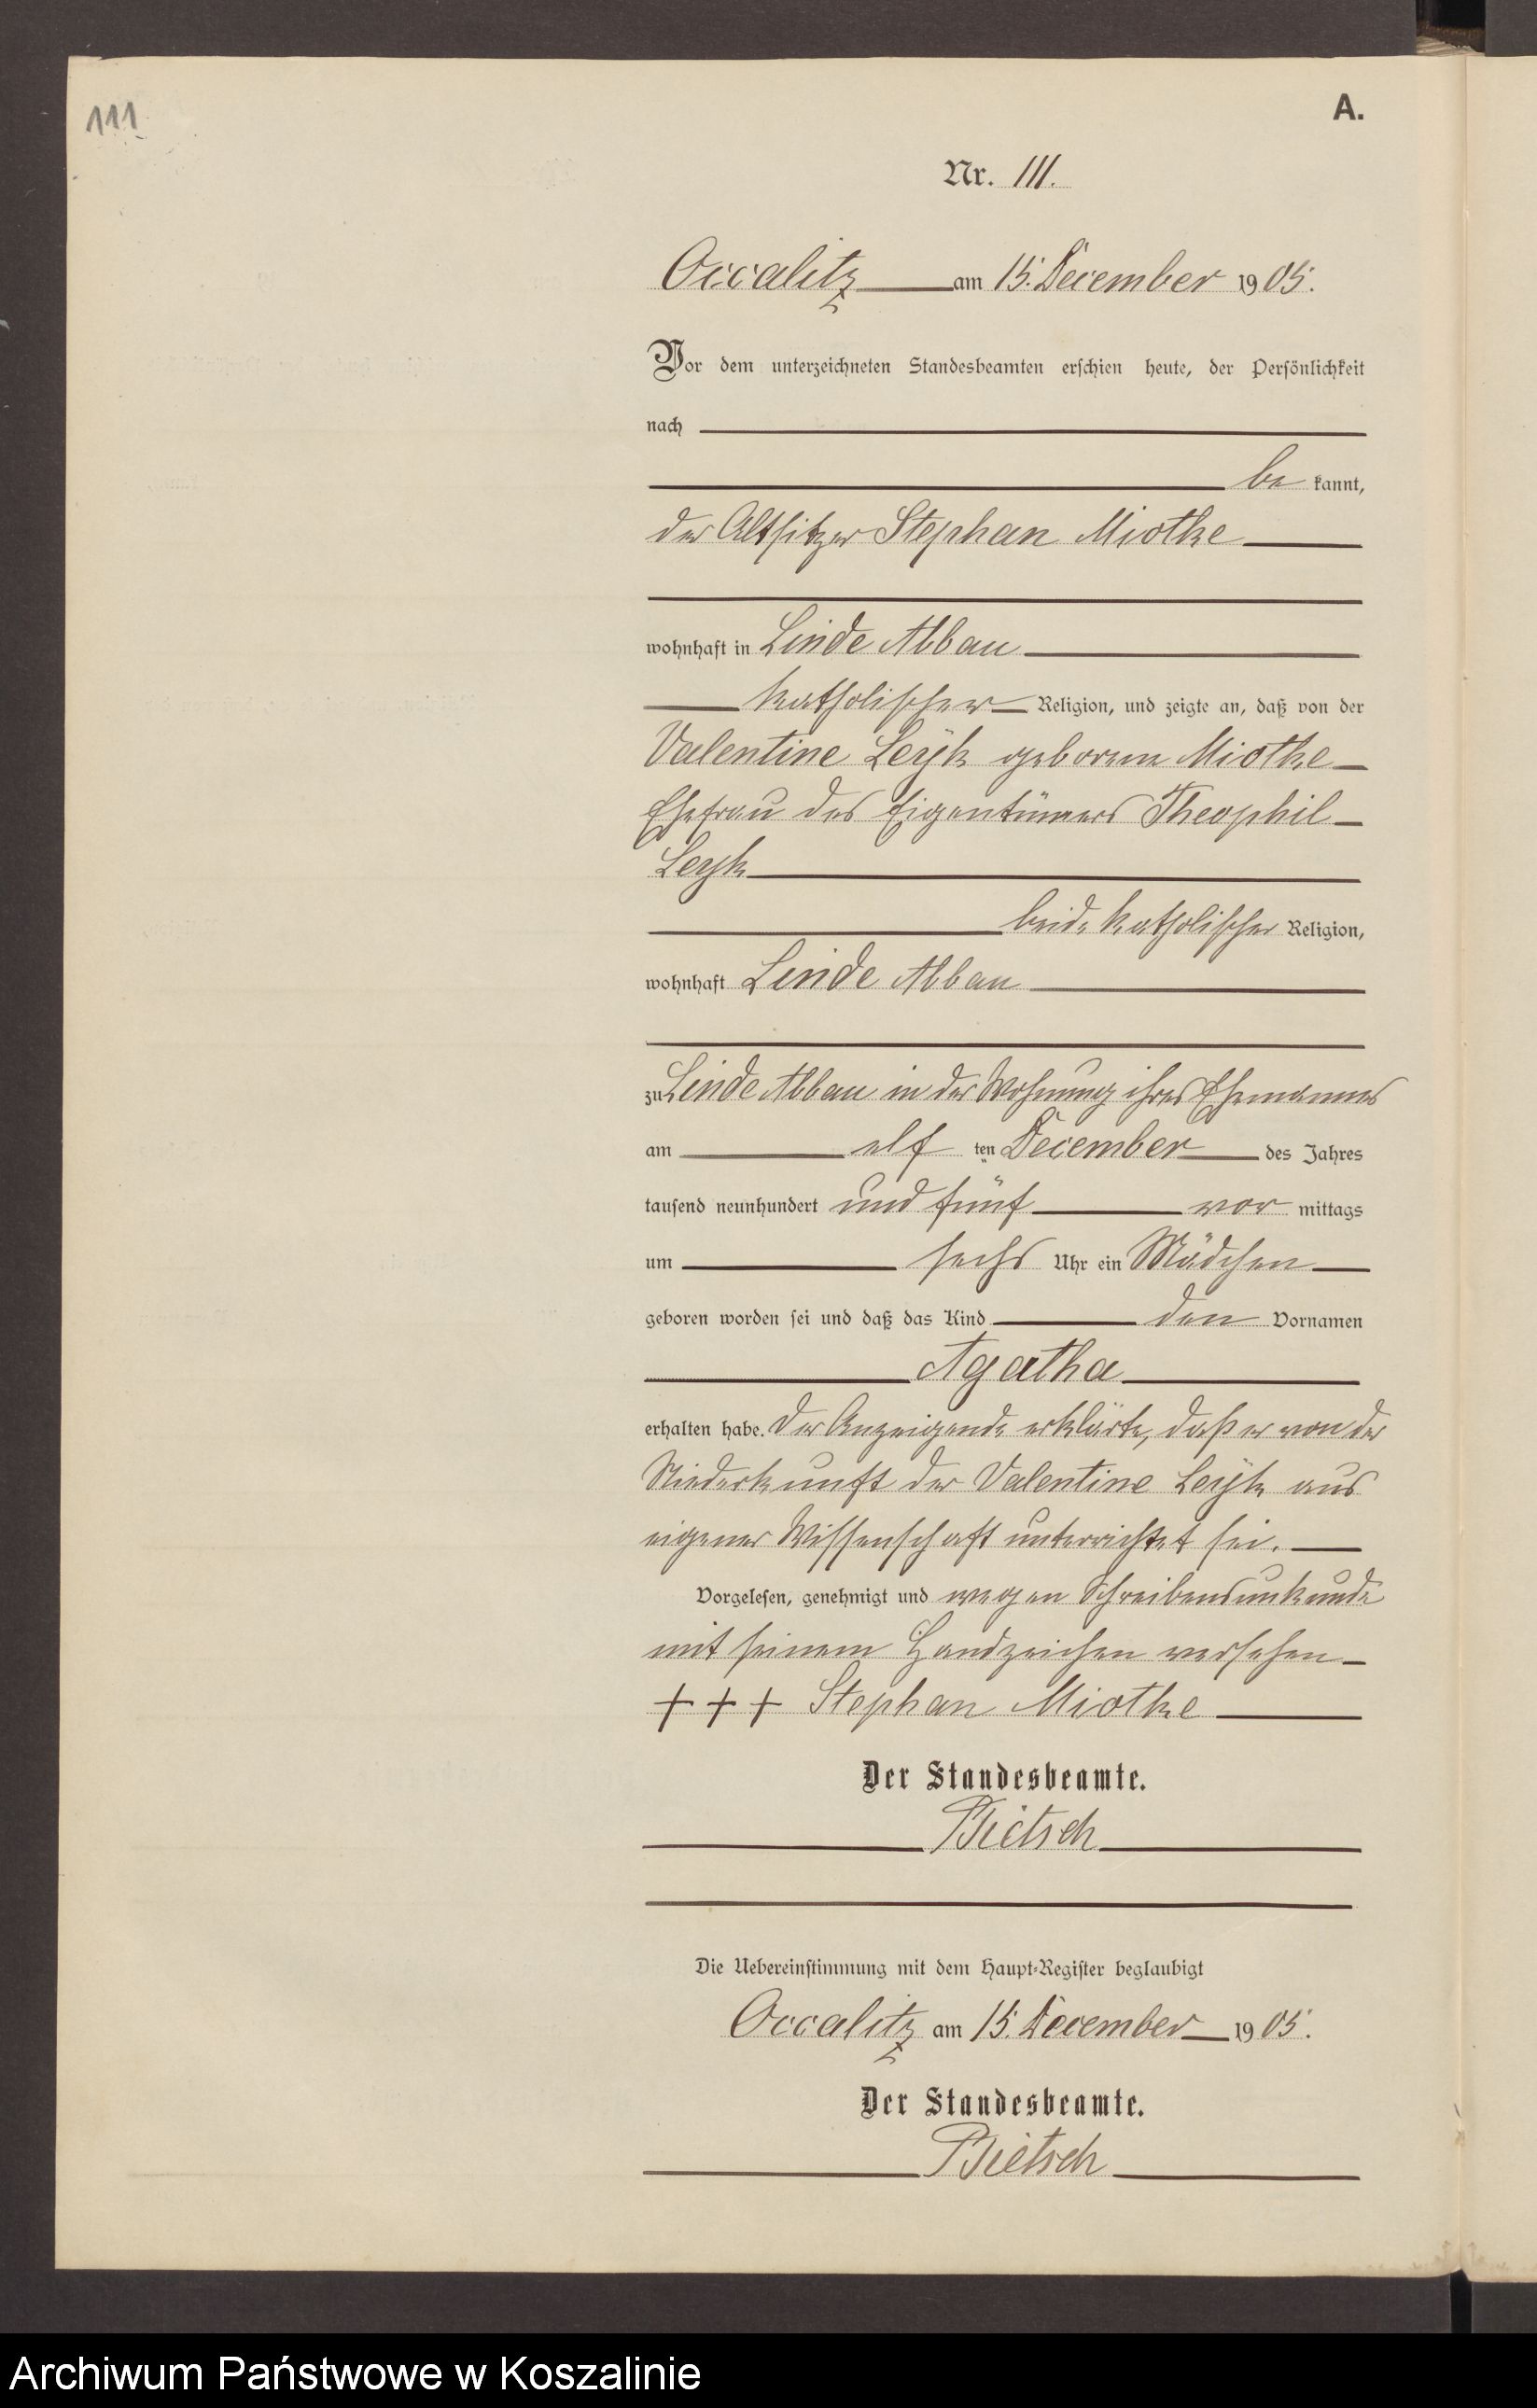 111
A.
Nr. 111.
Occalitz am 15. December 1905.
Vor dem unterzeichneten Standesbeamten erschien heute, der Persönlichkeit
nach
be kannt,
der Altsitzer Stephan Miotke
wohnhaft in Linde Abbau
katholischer Religion, und zeigte an, daß von der
Valentine Leyk geborene Miotke
Ehefrau des Eigentümers Theophil
Leyk
beide katholischer Religion,
wohnhaft Linde Abbau
zu Linde Abbau in der Wohnung ihres Ehemannes
am elf ten December des Jahres
tausend neunhundert und fünf vor mittags
um sechs Uhr ein Mädchen
geboren worden sei und daß das Kind den Vornamen
Agatha
erhalten habe. Der Anzeigende erklärte, daß er von der
Niederkunft der Valentine Leyk aus
eigener Wissenschaft unterrichtet sei.
Vorgelesen, genehmigt und wegen Schreibensunkunde
mit seinem Handzeichen versehen
+++ Stephan Miotke
Der Standesbeamte.
Bietsch
Die Uebereinstimmung mit dem Haupt-Register beglaubigt
Occalitz am 15. December 1905.
Der Standesbeamte.
Bietsch
Archiwum Państwowe w Koszalinie